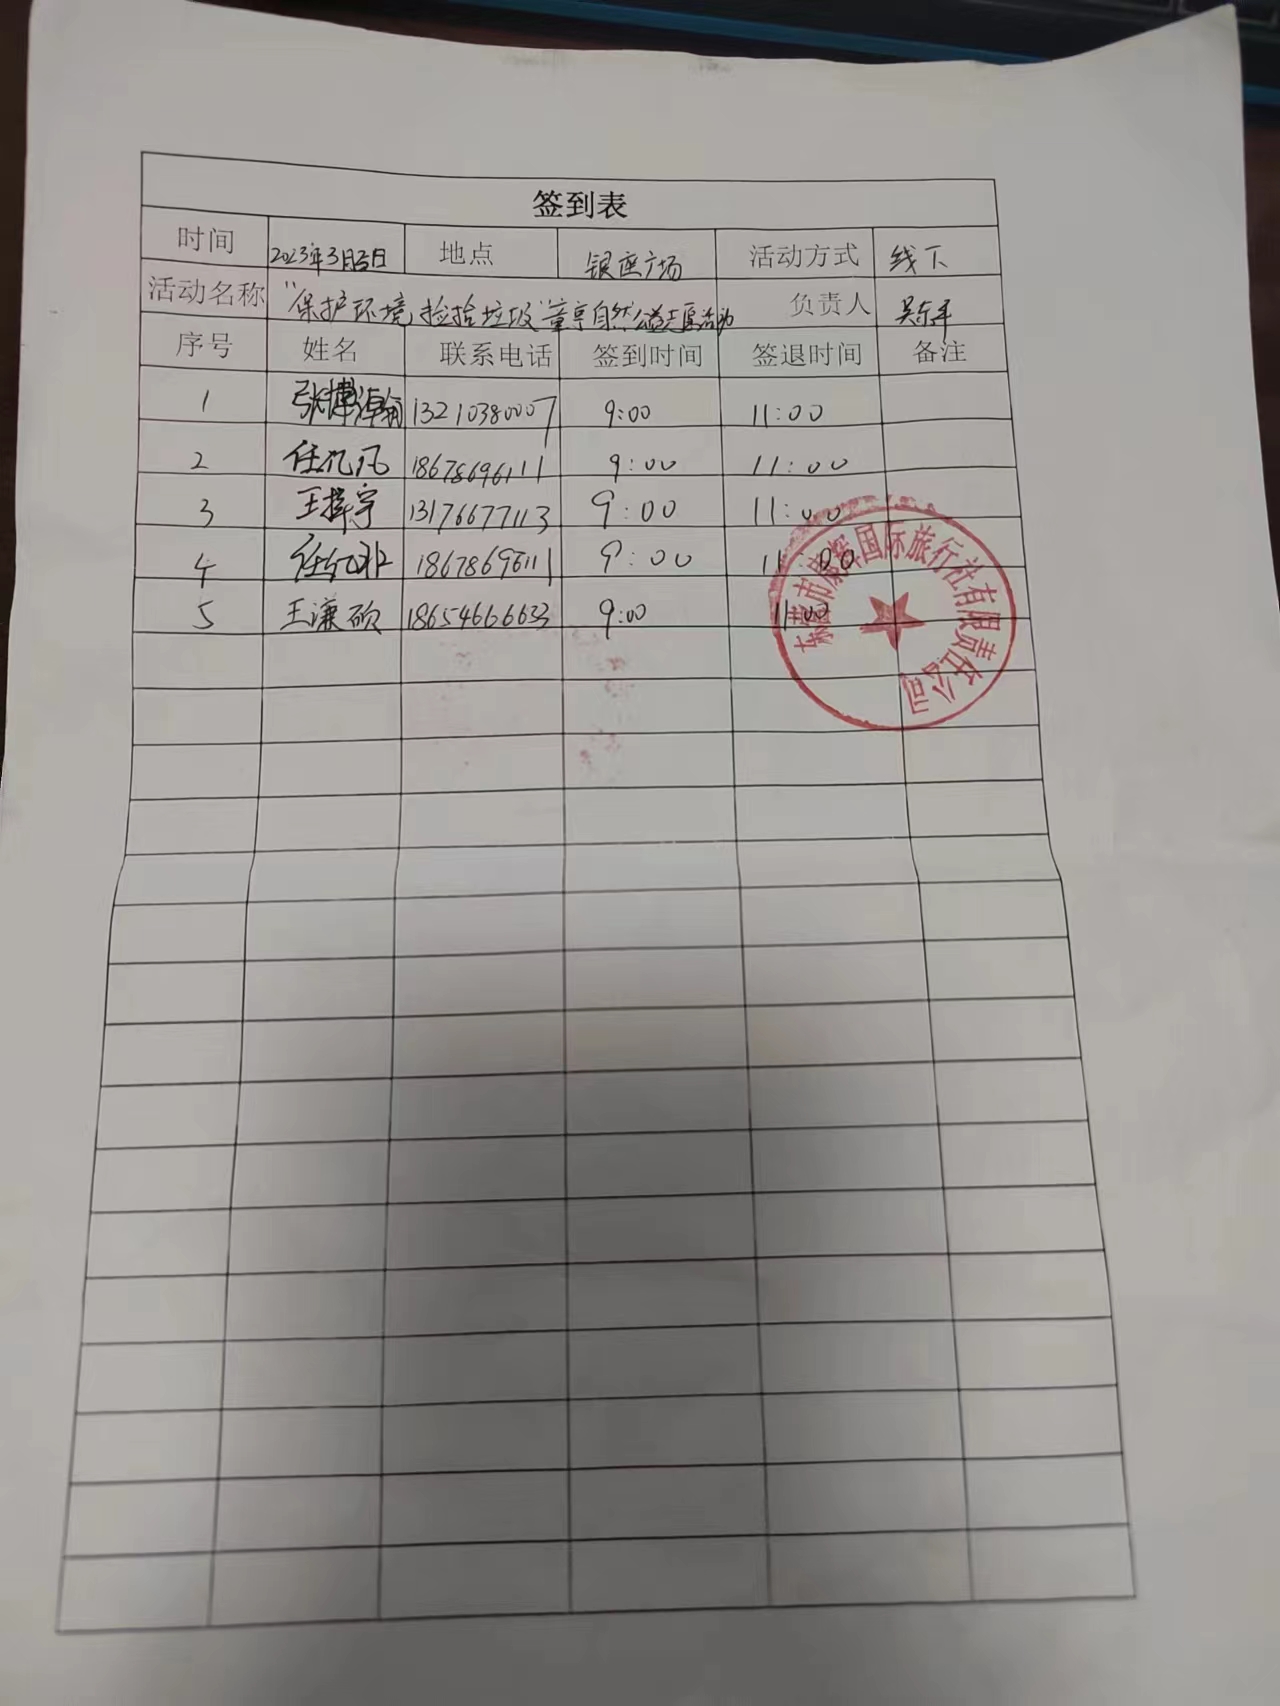 签到表
时间 2023年3月5日 地点 银座广场 活动方式 线下
活动名称 "保护环境 捡拾垃圾"童享自然公益志愿活动 负责人 吴东平
序号 姓名 联系电话 签到时间 签退时间 备注
1 张博瀚 13210380007 9:00 11:00
2 任亿凡 18678696111 9:00 11:00
3 王梓宇 13176677113 9:00 11:00
4 任亿非 18678696111 9:00 11:00
5 王濂硕 18654666633 9:00 11:00
东营市康辉国际旅行社有限责任公司